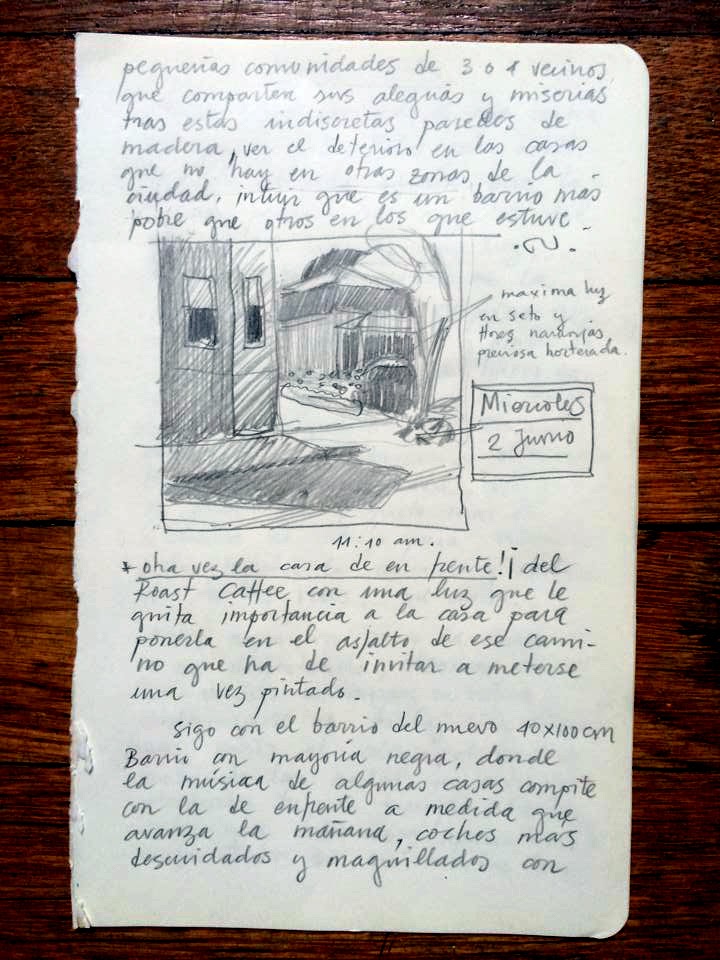 pequeñas comunidades de 3 o 4 vecinos,
que comparten sus alegrías y miserias
tras estas indiscretas paredes de
madera, ver el deterioro en las casas
que no hay en otras zonas de la
ciudad, intuir que es un barrio mas
pobre que otros en los que estuve
maxima luz
en seto y
flores naranjas,
preciosa horterada.
Miercoles
2 Junio
11:10 am.
* otra vez la casa de en frente!¡ del
Roast Caffee con una luz que le
quita importancia a la casa para
ponerla en el asfalto de ese cami-
no que ha de invitar a meterse
una vez pintado.
Sigo con el barrio del nuevo 40x100cm
Barrio con mayoría negra, donde
la música de algunas casas compite
con la de enfrente a medida que
avanza la mañana, coches mas
descuidados y maquillados con